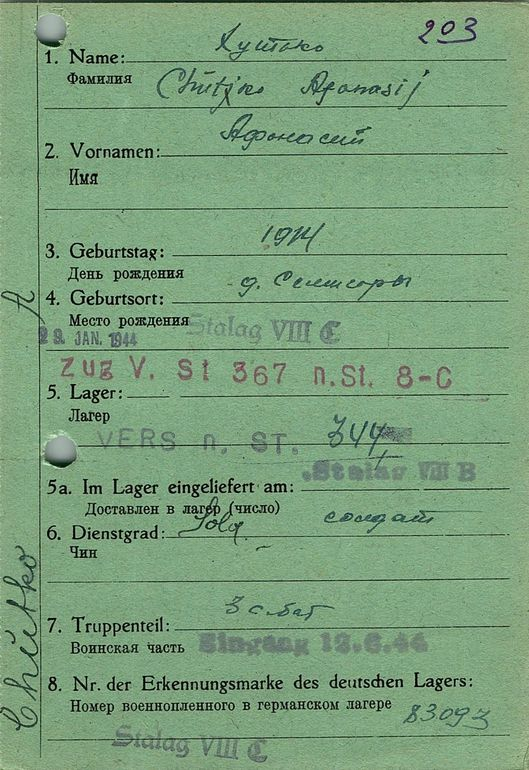 203
1. Name: Хутько
Фамилия Chutjko Afonasij
Афонасий
2. Vornamen:
Имя
3. Geburtstag: 1914
День рождения
4. Geburtsort: д.
Место рождения Stalag VIII C
29. JAN. 1944
Zug V. St 367 n.St. 8-C
5. Lager:
Лагер
VERS n. ST. 344
Stalag VIII B
5a. Im Lager eingeliefert am:
Доставлен в лагер (число)
6. Dienstgrad: Sold. солдат
Чин
7. Truppenteil: 3 с. бат
Воинская часть Eingang 12.6.44
8. Nr. der Erkennungsmarke des deutschen Lagers:
Номер военнопленного в германском лагере 83093
Stalag VIII C
Chutko A